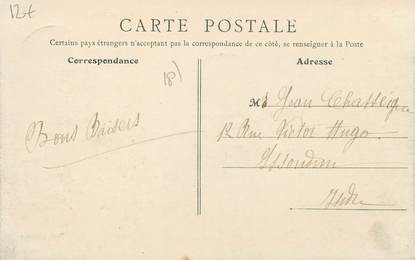 12t
CARTE POSTALE
Certains pays étrangers n'acceptant pas la correspondance de ce côté, se renseigner à la Poste
Correspondance
Adresse
18)
Jean
Bons Baisers
12 Rue Victor Hugo
Issoudun
Indre